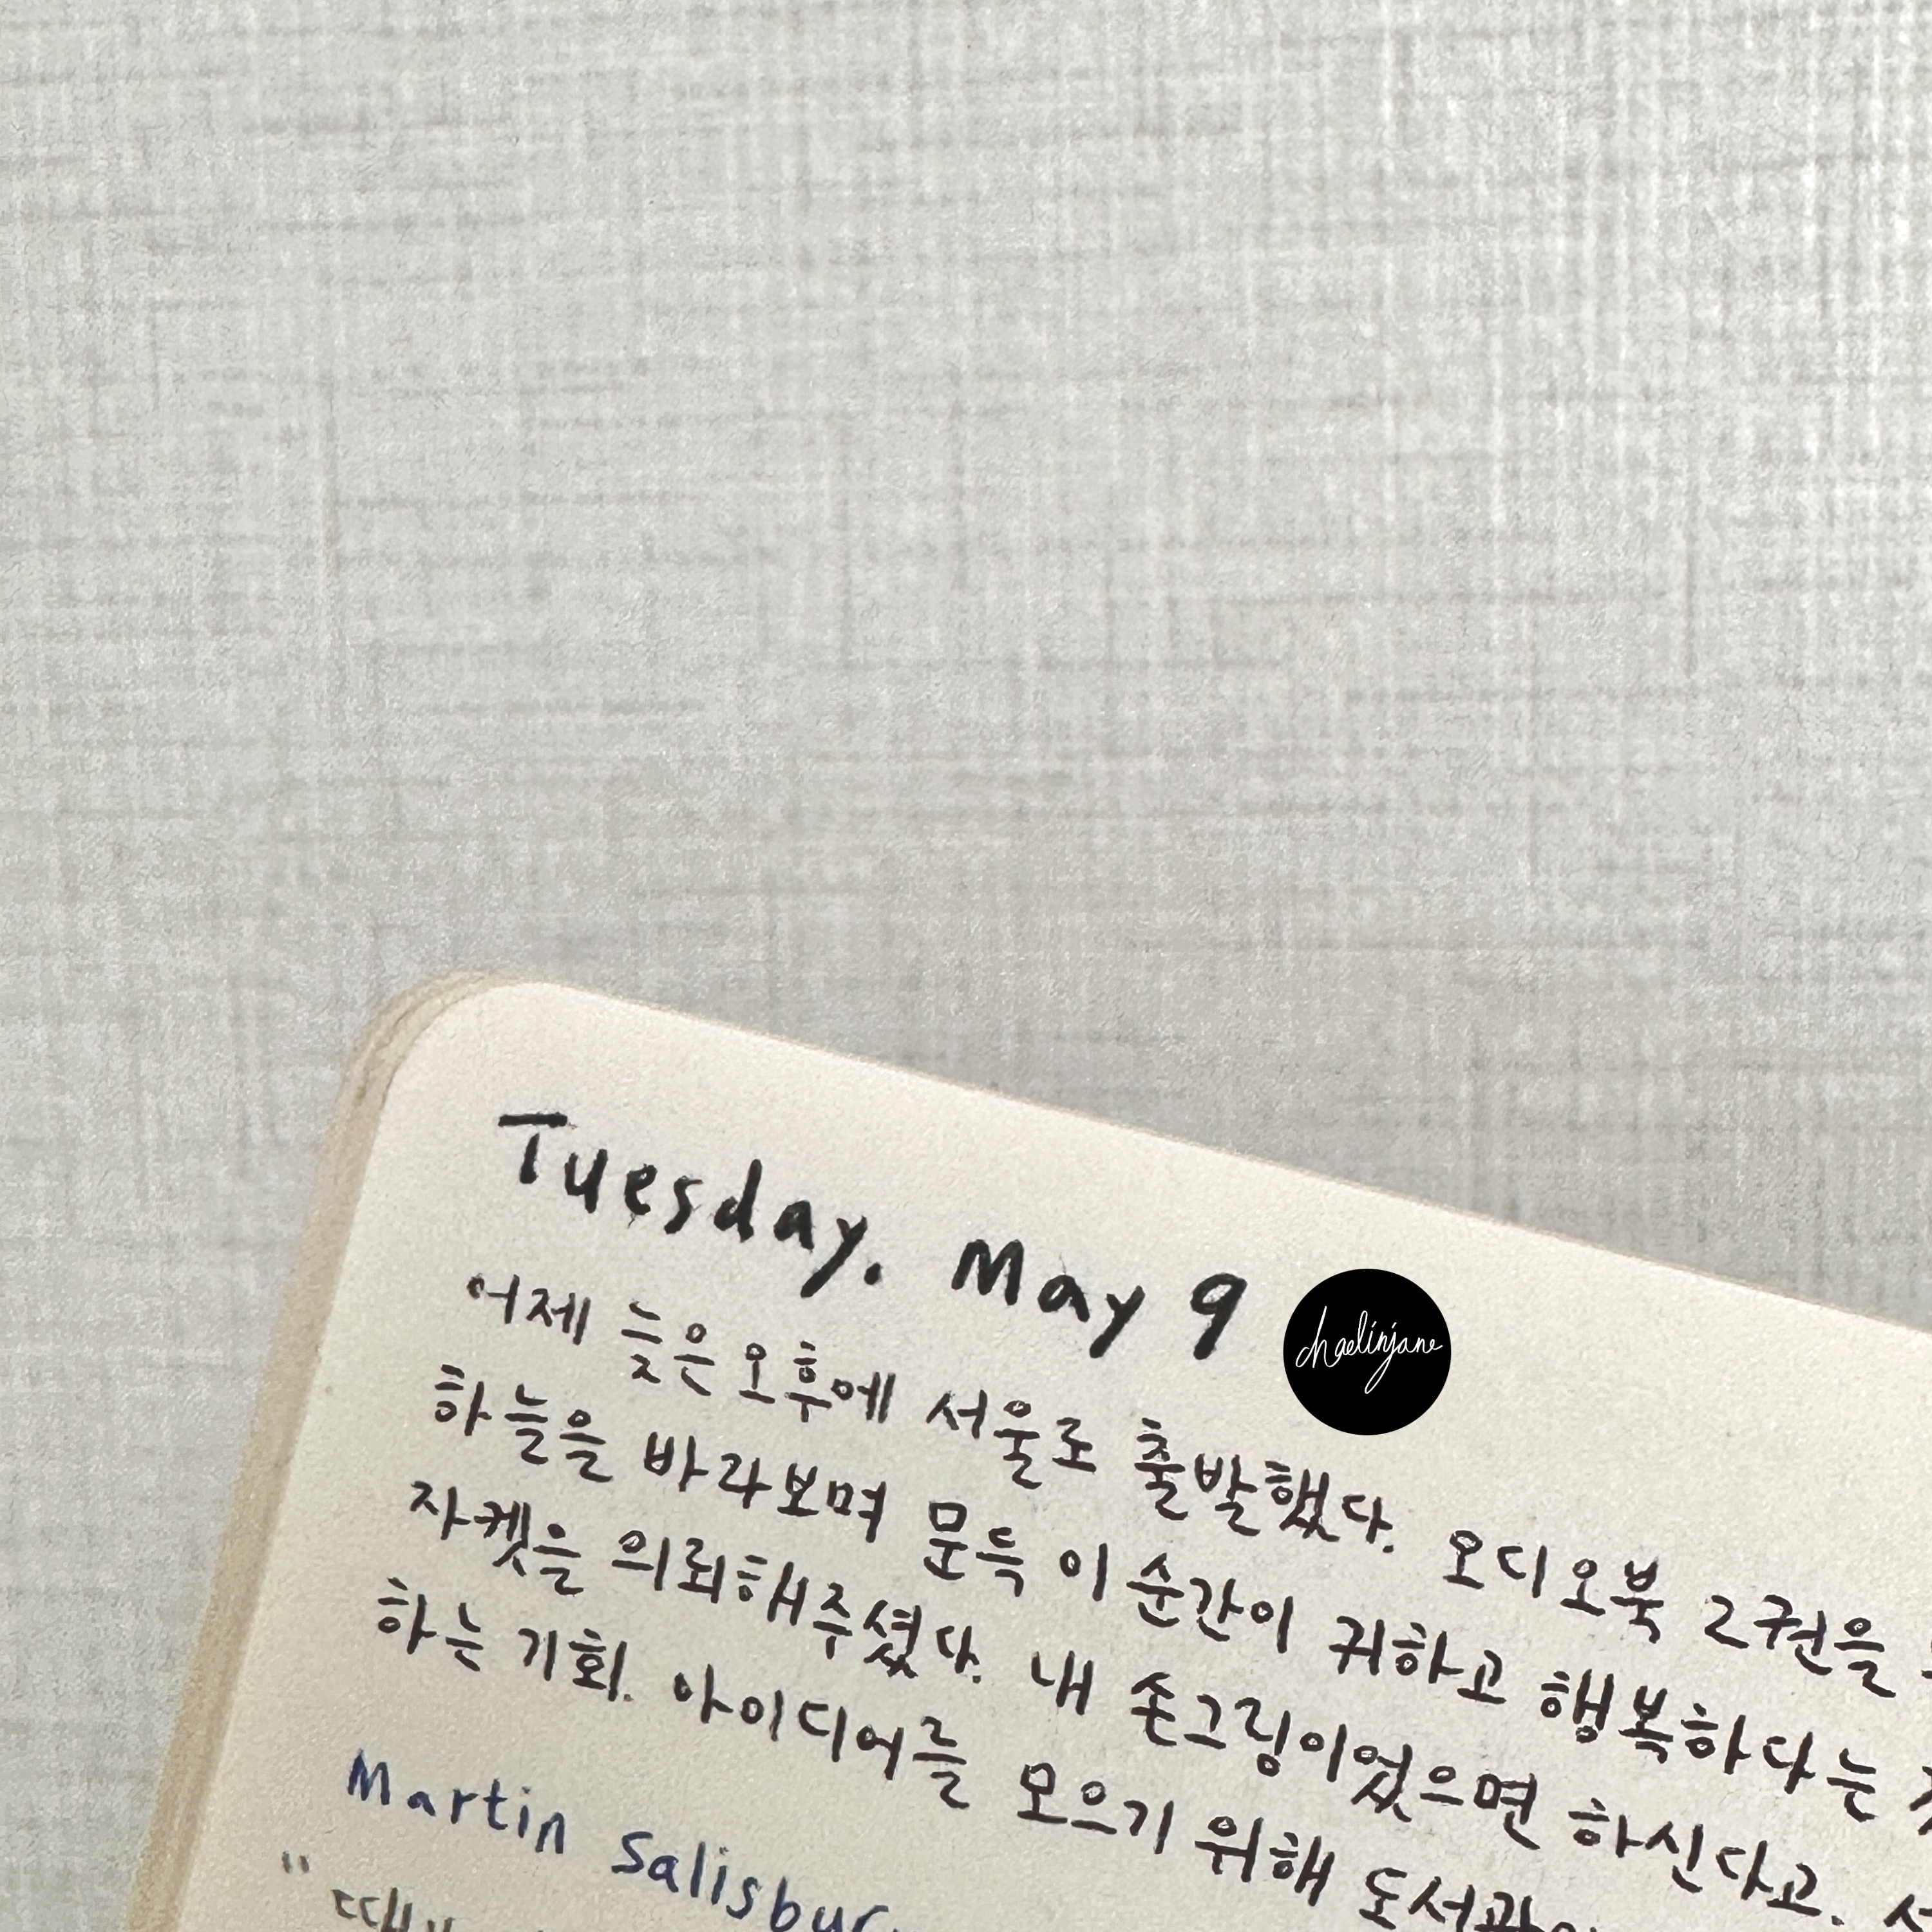 Tuesday. May 9
chaelinjane
어제 늦은 오후에 서울로 출발했다. 오디오북 2권을
하늘을 바라보며 문득 이 순간이 귀하고 행복하다는
자켓을 의뢰해주셨다. 내 손그림이었으면 하신다고.
하는 기회. 아이디어를 모으기 위해 도서관
Martin Salisbury
"